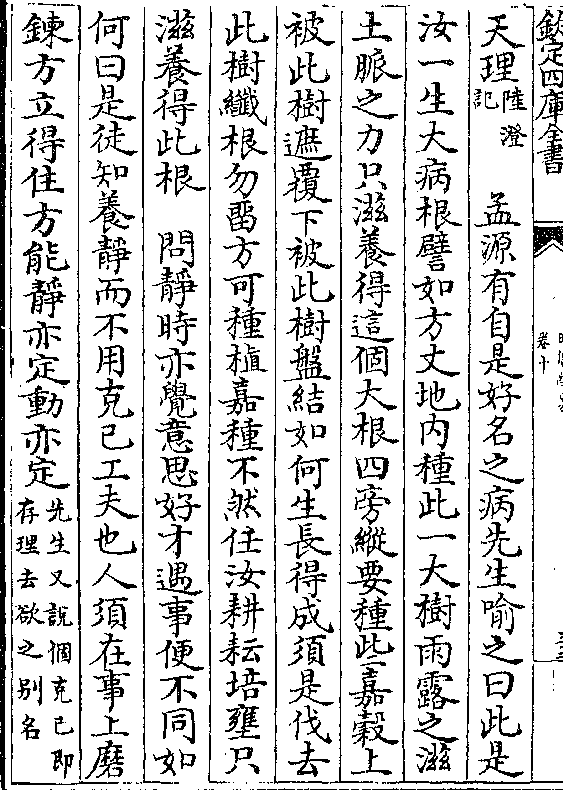 欽定四庫全書
卷十
天理陸澄記　孟源有自是好名之病先生喻之曰此是
汝一生大病根譬如方丈地内種此一大樹雨露之滋
土脈之力只滋養得這個大根四旁縱要種此嘉穀上
被此樹遮覆下被此樹盤結如何生長得成須是伐去
此樹纖根勿留方可種植嘉種不然任汝耕耘培壅只
滋養得此根　問靜時亦覺意思好才遇事便不同如
何曰是徒知養靜而不用克己工夫也人須在事上磨
鍊方立得住方能靜亦定動亦定先生又說個克己即存理去欲之别名